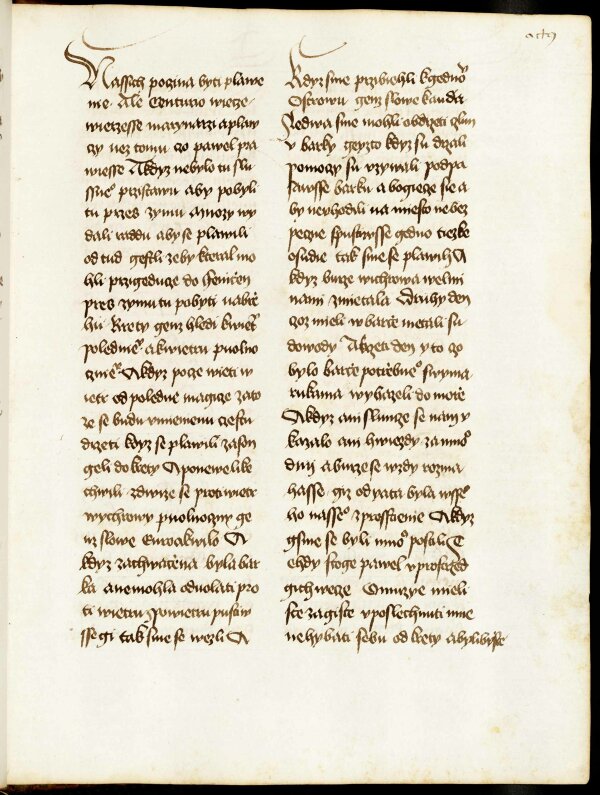 actꝰ
Nassich pogima byti plawe
nie Ale Centurio wieze
wierzesse marynarzi a plaw
czy nez tomu czo pawel pra
wiesse A kdyz nebylo tu slu
ssneho przistawu aby pobyli
tu przes zymu a mnozy wy
dali raddu aby se plawili
od tud gestli ze by kteral mo
hli przigeduze do feniczen
pres zymu tu pobyti u brze
hu krety genz hledi k wiet
poledniemu a k wietru puolno
cznie A kdyz pocze wieti w
ietr od poledne magicze zato
ze se budu umienenu czestu
drzeti kdyz se plawili z ason
geli do krety A ponewelike
chwili zdwize se proti wietr
wychrowy puolnoczny ge
nz slowe Euroakwilo A
kdyz zachwaczena byla bar
ka a nemohla odolati pro
ti wietru powietru pustiw
sse gi tak sme se wezli A
Kdyz sme przibiehli k gednomu
Ostrowu genz slowe kauda
Ledwa sme mohli obdrzeti czlun
v barky geyzto kdyz su drzali
pomoczy su uzywali podpa
sawsse barku a bogiecze se a
by newhodili na miesto nebez
peczne spustiwsse gedno tiezke
osudie tak sme se plawili A
kdyz burze wichrowa welmi
nami zmietala Druhy den
coz mieli w barce metali su
dowody A trzeti den y to czo
bylo barce potrzebneho swyma
rukama wyhazeli do morze
A kdyz ani slunce se nam v
kazalo ani hwiezdy za mnoho
dni a burze se wzdy rozma
hasse giz odyata byla wsse
ho nasseho zprossczenie A kdyz
gsme se byli mnoho postili T
ehdy stoge pawel v prostrzed
gich wece O muzye mieli
ste zagiste vposlechnuti mne
nehybati sebu od krety a byli byste